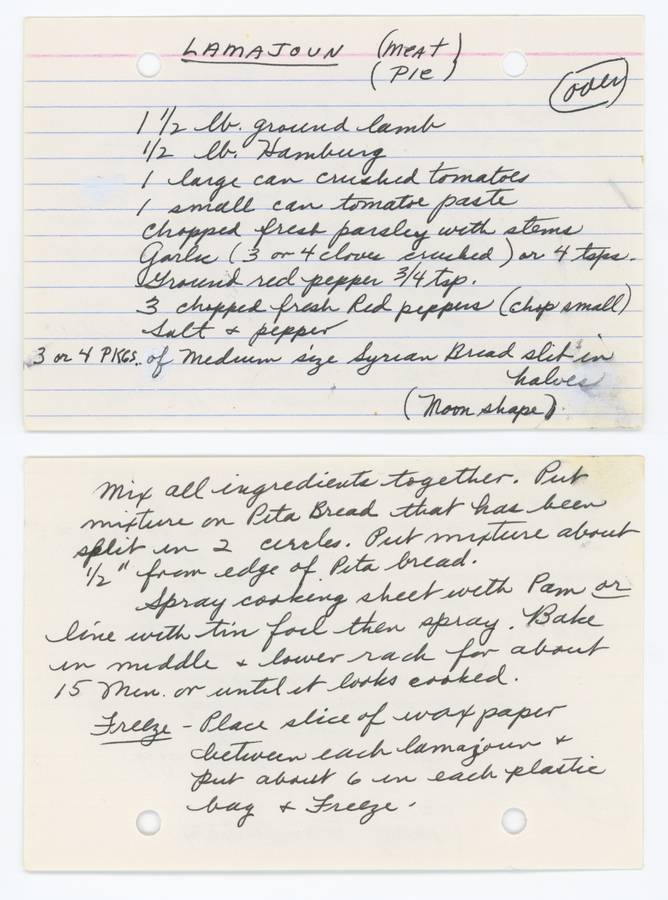 LAMAJOUN (Meat)
(Pie)
(over)
1 1/2 lb. ground lamb
1/2 lb. Hamburg
1 large can crushed tomatoes
1 small can tomatoe paste
chopped fresh parsley with stems
Garlic (3 or 4 cloves crushed) or 4 tsps.
Ground red pepper 3/4 tsp.
3 chopped fresh Red peppers (chop small)
Salt & pepper
3 or 4 PKGS. of Medium size Syrian Bread slit in
halves
(Moon shape)
Mix all ingredients together. Put
mixture on Pita Bread that has been
split in 2 circles. Put mixture about
1/2" from edge of Pita bread.
Spray cooking sheet with Pam or
line with tin foil then spray. Bake
in middle & lower rack for about
15 Min. or until it looks cooked.
Freeze - Place slice of wax paper
between each lamajoun &
put about 6 in each plastic
bag & Freeze.